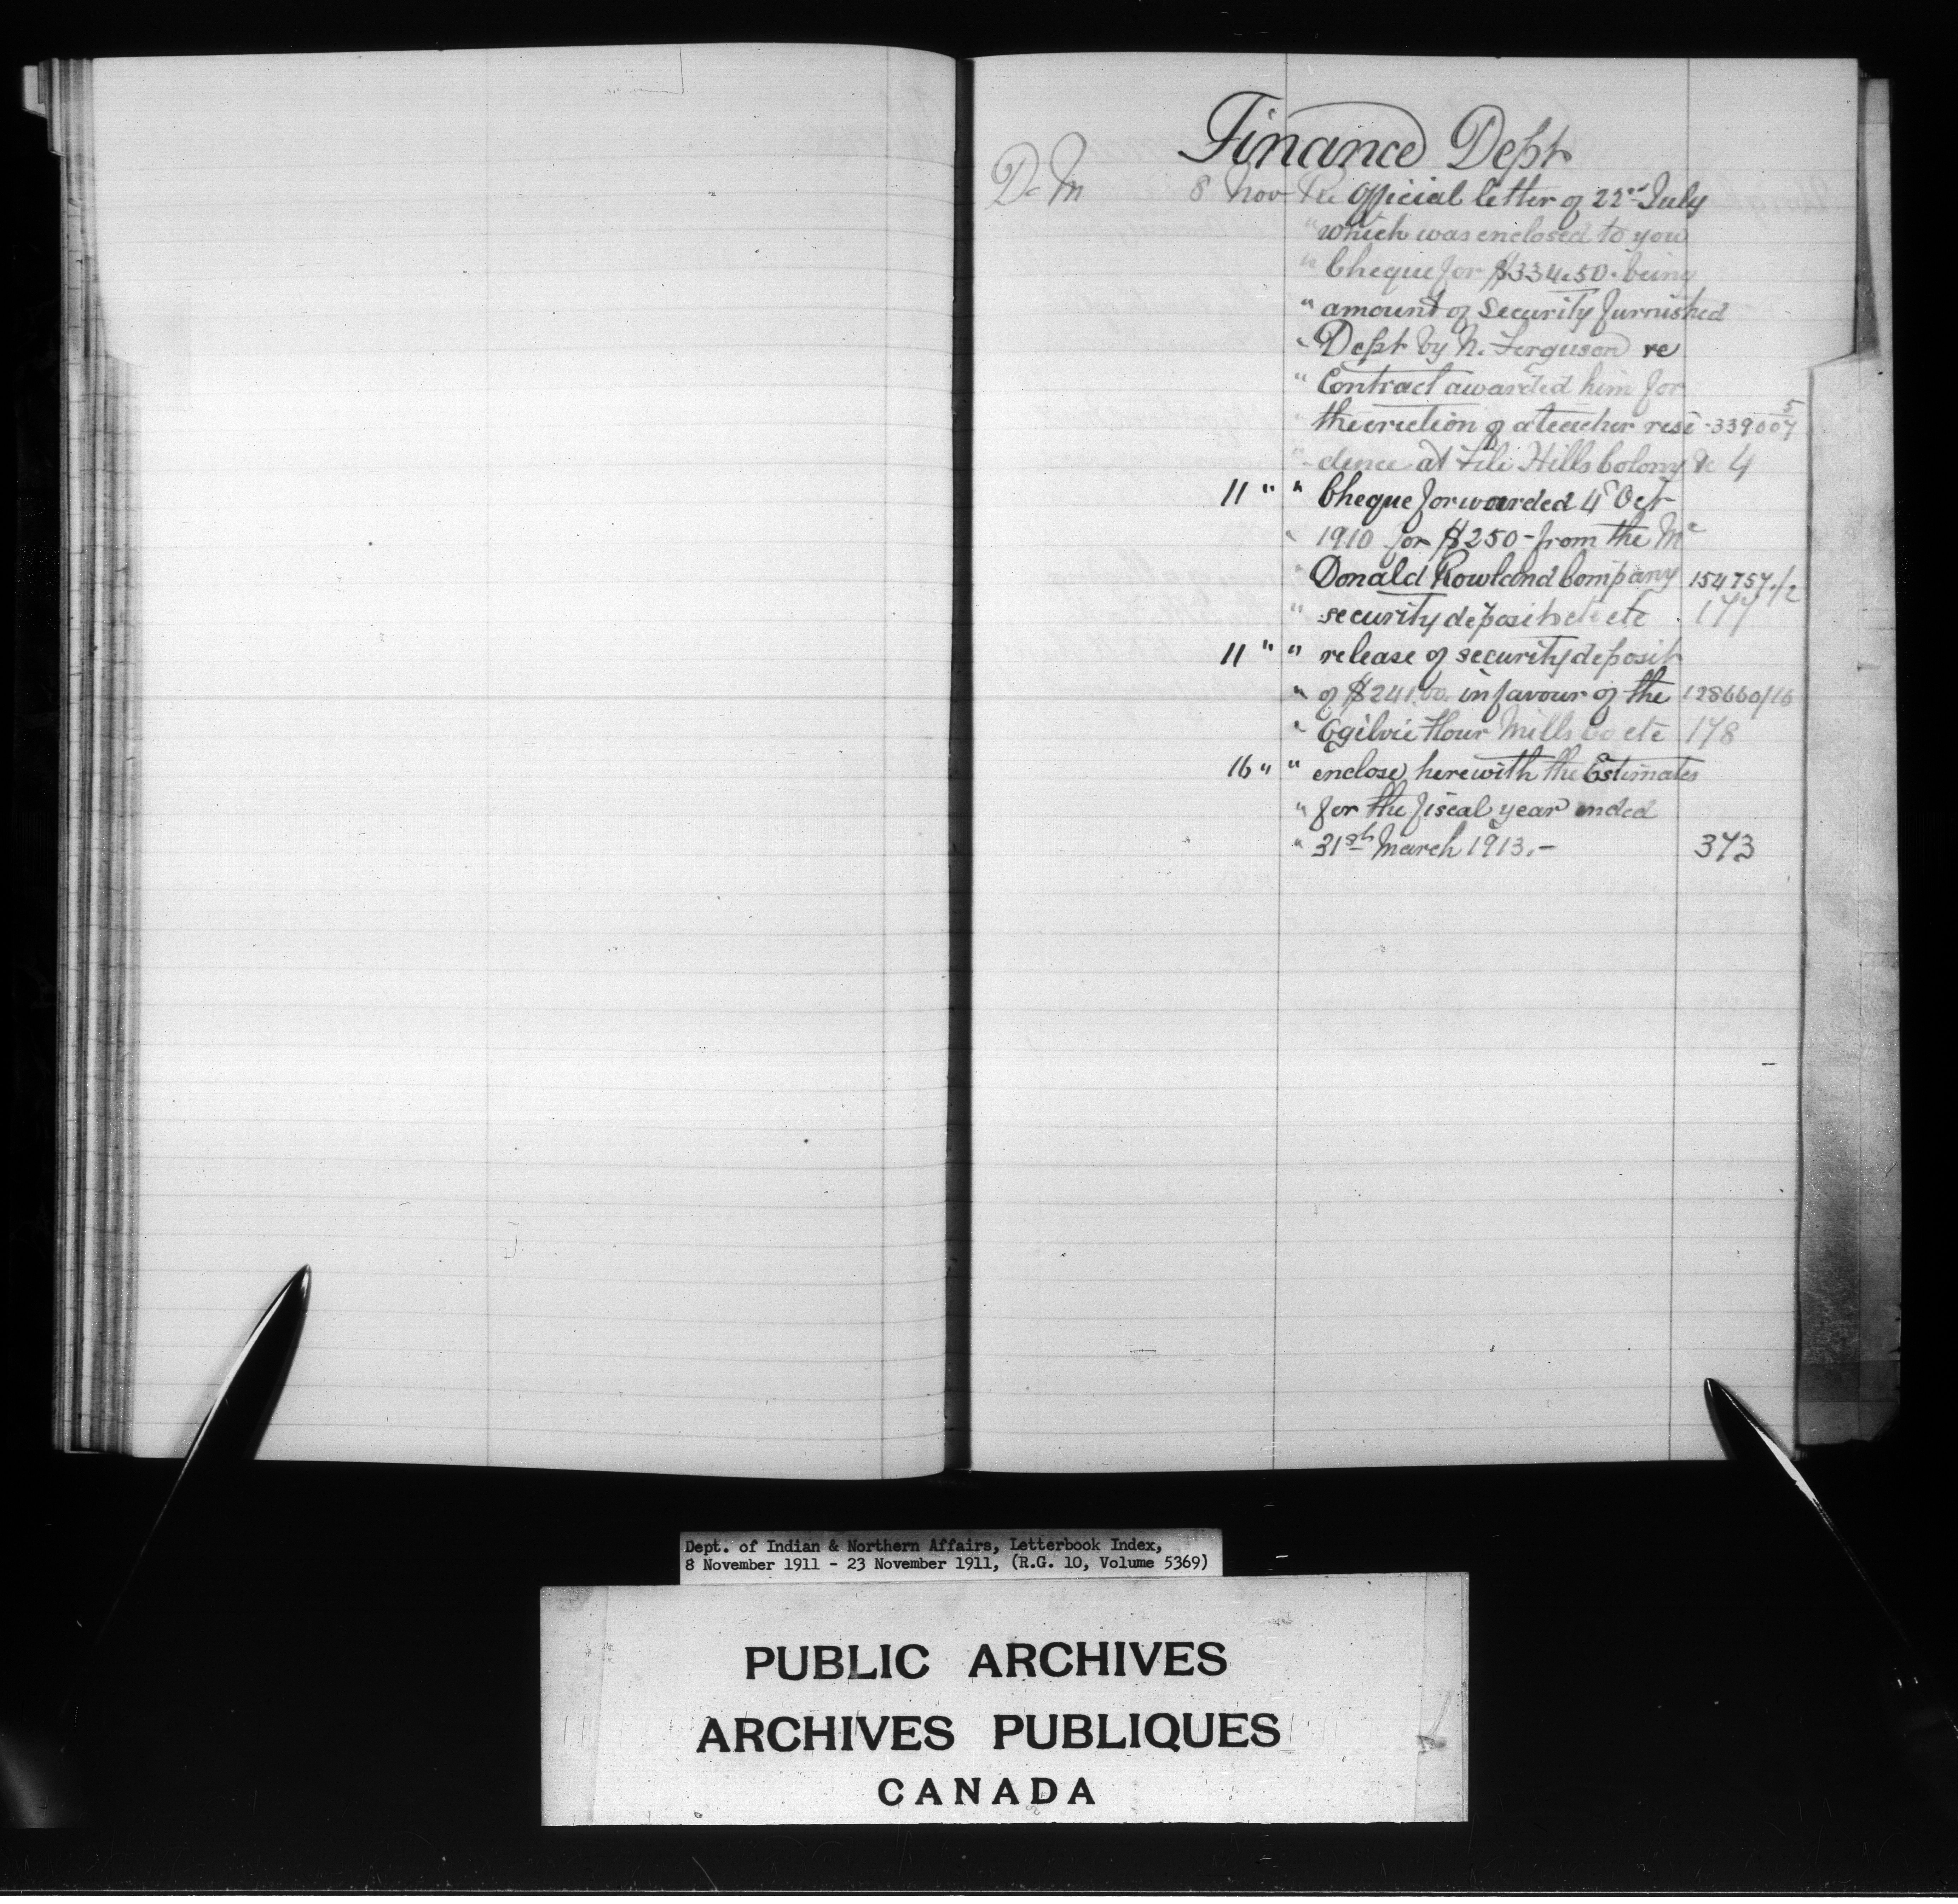 Finance Dept
D. M 8 Nov Re Official letter of 22nd July
" which was enclosed to you
" Cheque for $334.50. being
" amount of Security furnished
" Dept by N. Ferguson re
" Contract awarded him for
the erection of a teacher resi - 339007/5
" - dence at File Hills Colony &c 4
11 " " Cheque forwarded 4 Oct
" 1910 for $250 - from the Mc
Donald Rowland Company 154757./2
" security deposit etc etc 177
11 " " release of security deposit
" of $241.00. in favour of the 128660/16
" Ogilvie Flour Mills Co etc 178
16 " " enclose herewith the Estimates
" for the fiscal year ended
" 31st March 1913. - 373
Dept. of Indian & Northern Affairs, Letterbook Index,
8 November 1911 - 23 November 1911, (R.G. 10, Volume 5369)
PUBLIC ARCHIVES
ARCHIVES PUBLIQUES
CANADA